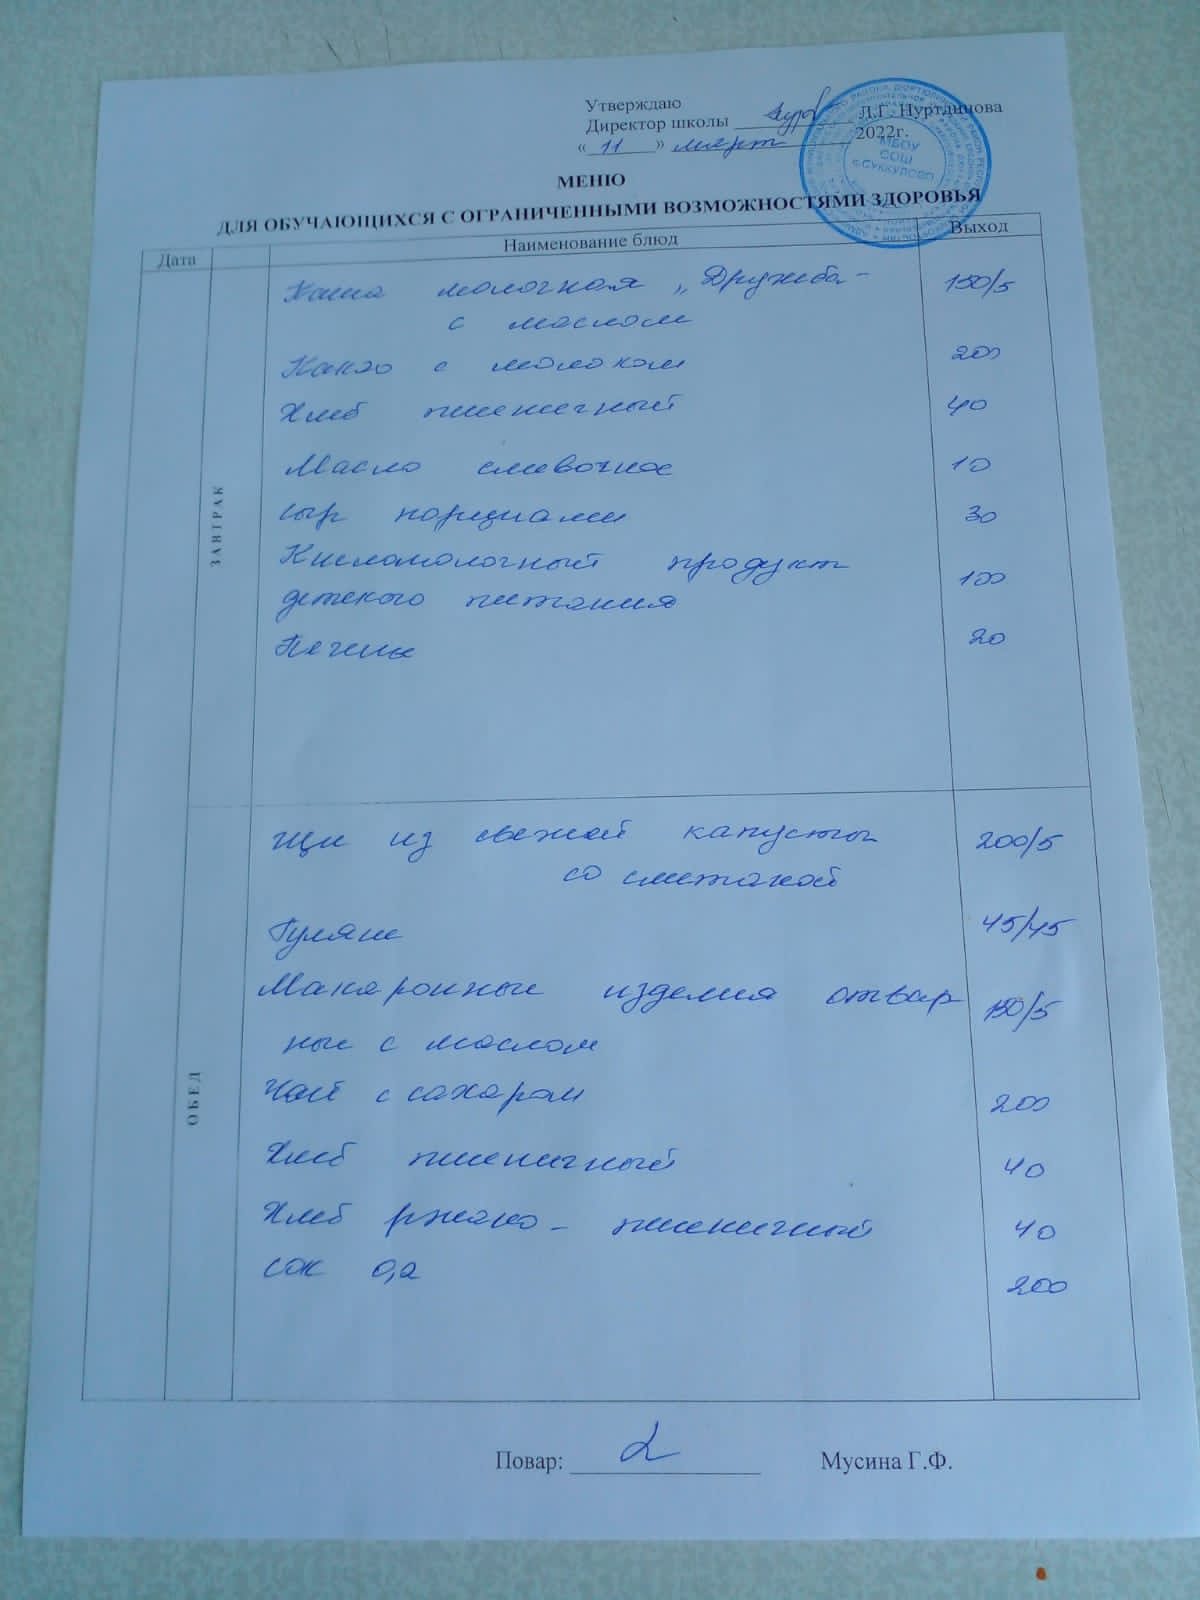 Утверждаю
Директор школы Л.Г. Нуртдинова
« 11 » март 2022г.
МБОУ
СОШ
с.СУККУЛОВО
МЕНЮ
ДЛЯ ОБУЧАЮЩИХСЯ С ОГРАНИЧЕННЫМИ ВОЗМОЖНОСТЯМИ ЗДОРОВЬЯ
Дата Наименование блюд Выход
ЗАВТРАК
Каша молочная „Дружба- 150/5
с маслом
Какао с молоком 200
Хлеб пшеничный 40
Масло сливочное 10
сыр порциами 30
Кисломолочный продукт 100
детского питания
Печенье 20
ОБЕД
Щи из свежей капусты 200/5
со сметаной
Гуляш 45/45
Макаронные изделия отвар 150/5
ные с маслом
Чай с сахаром 200
Хлеб пшеничный 40
Хлеб ржано- пшеничный 40
сок 0,2 200
Повар: Мусина Г.Ф.